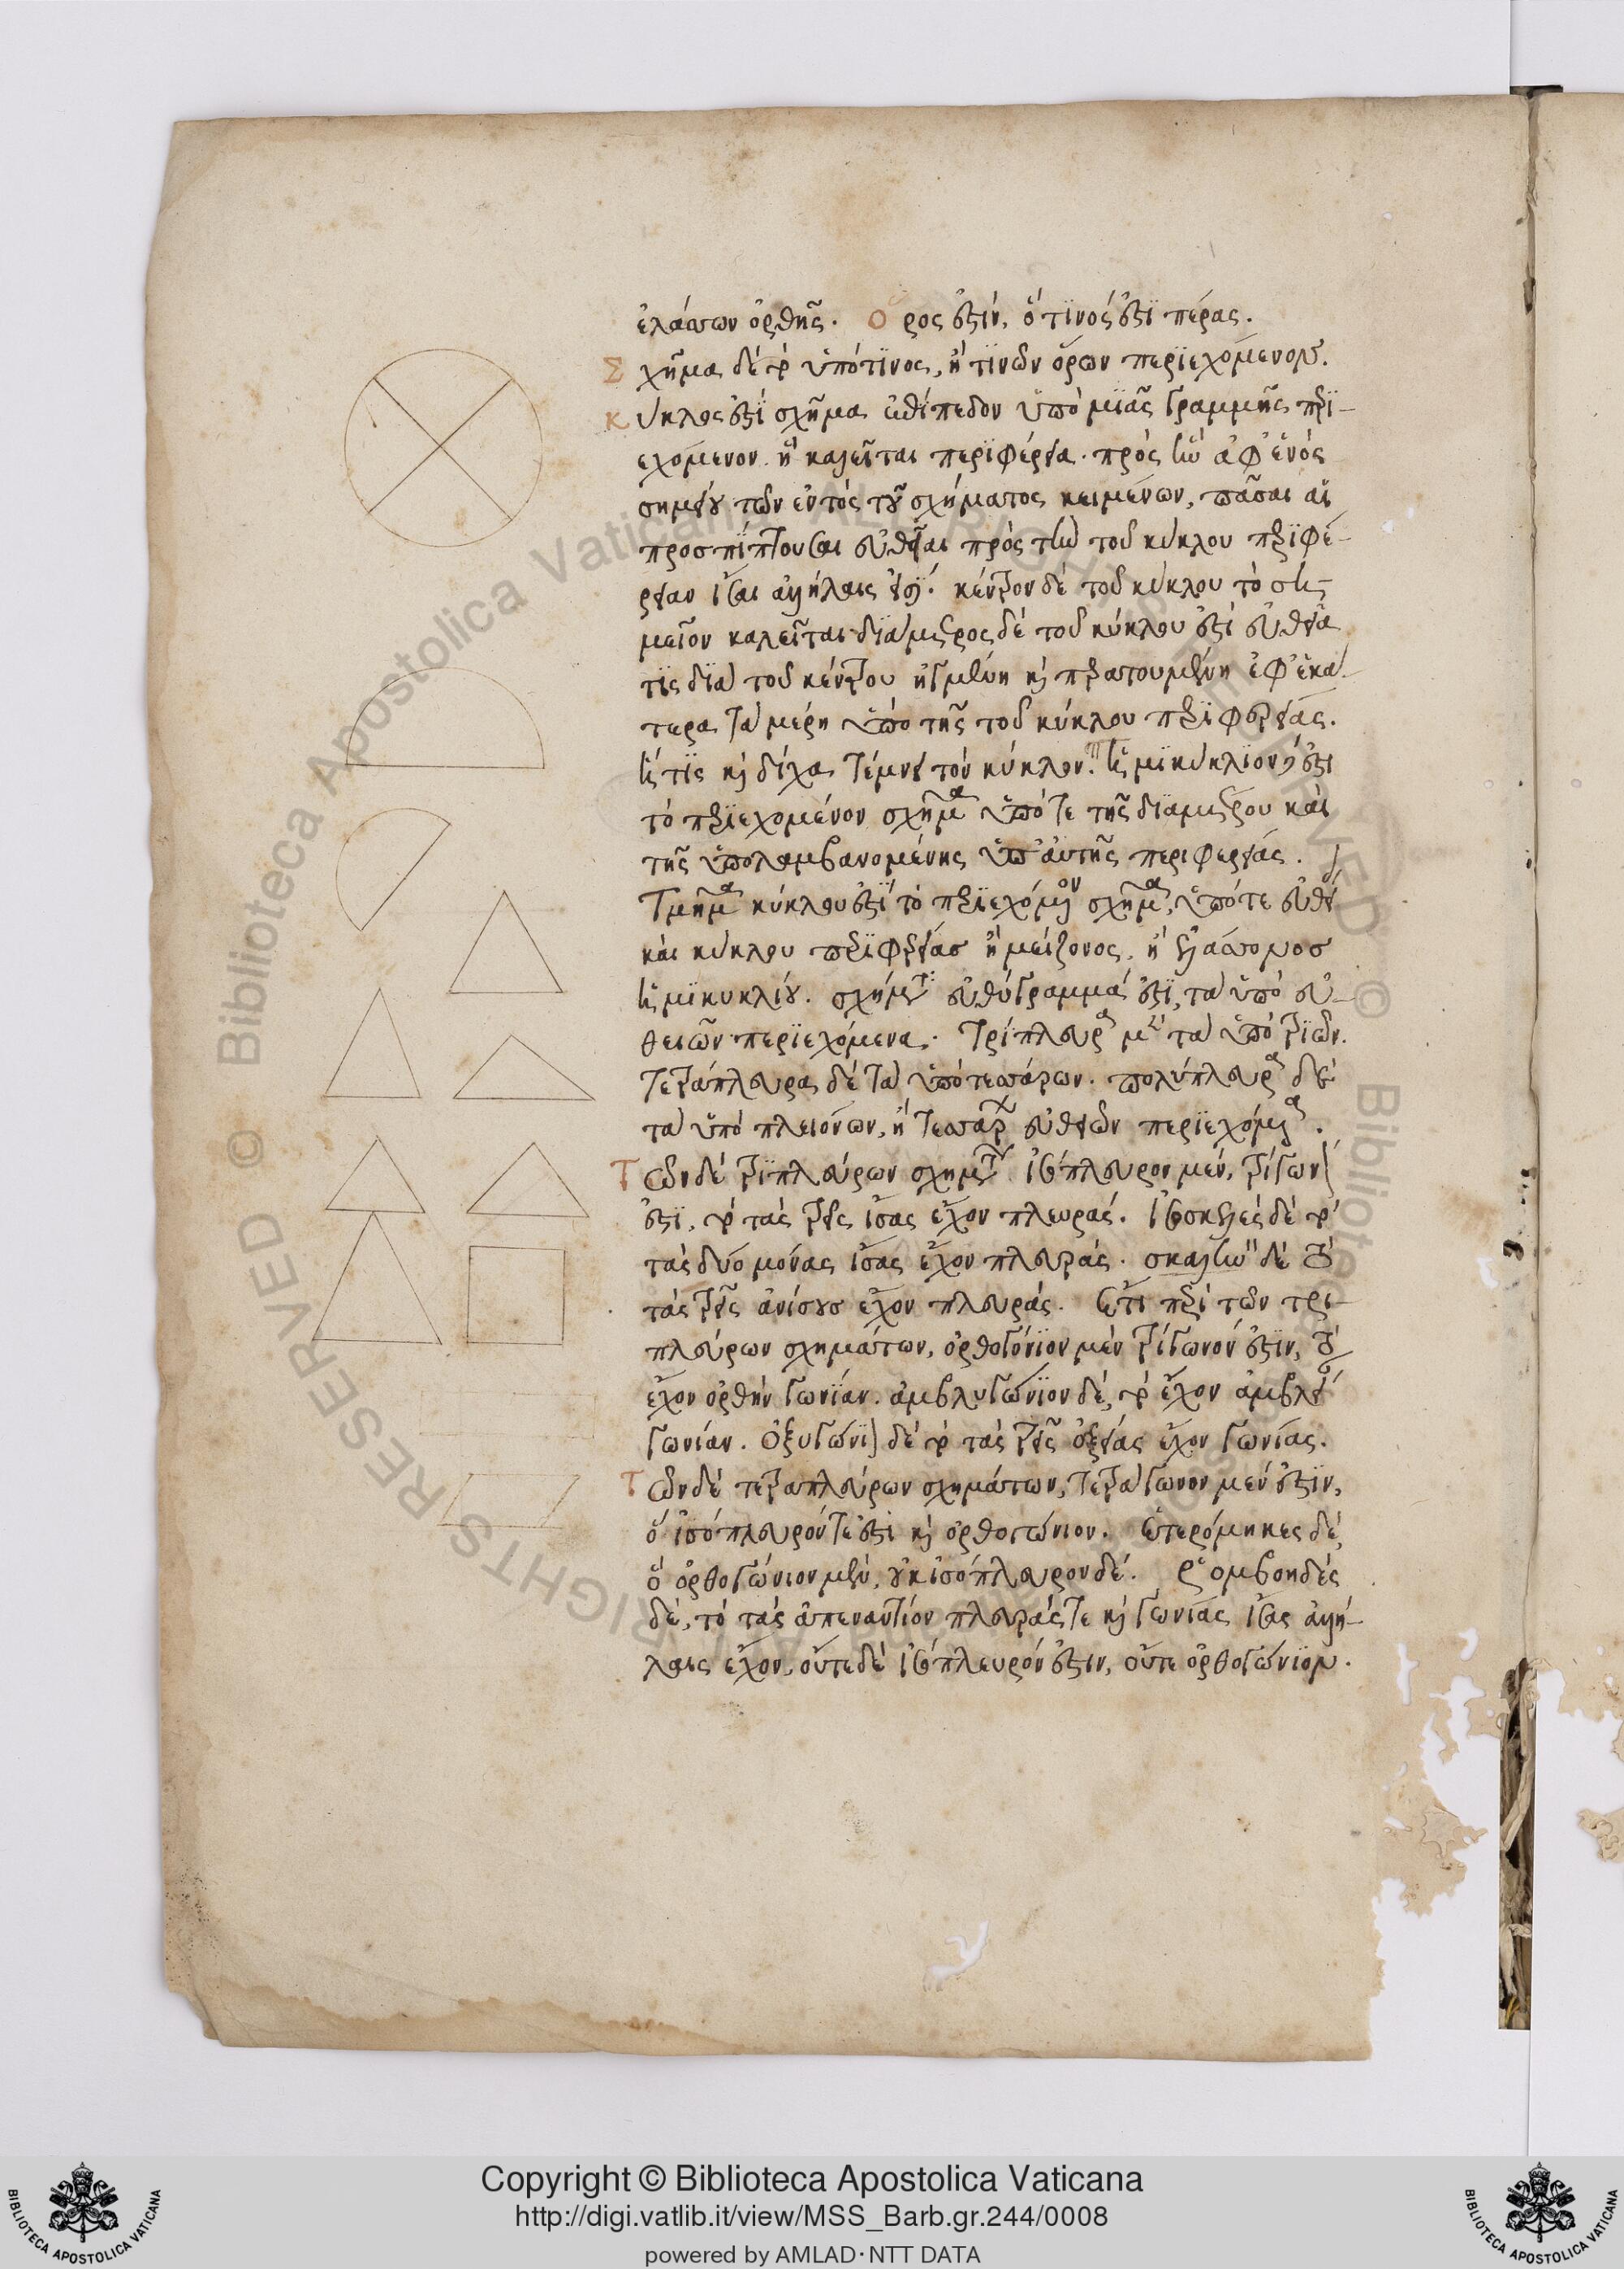 ἐλάττων ὀρθῆς. Ὅρος ἐστίν, ὅ τινός ἐστι πέρας.
Σχῆμα δὲ τὸ ὑπό τινος, ἤ τινων ὅρων περιεχόμενον.
Κύκλος ἐστὶ σχῆμα ἐπίπεδον ὑπὸ μιᾶς γραμμῆς περι-
εχόμενον. ἣ καλεῖται περιφέρεια. πρὸς ἣν ἀφ' ἑνὸς
σημείου τῶν ἐντὸς τοῦ σχήματος κειμένων, πᾶσαι αἱ
προσπίπτουσαι εὐθεῖαι πρὸς τὴν τοῦ κύκλου περιφέ-
ρειαν ἴσαι ἀλλήλαις εἰσί. κέντρον δὲ τοῦ κύκλου τὸ ση-
μεῖον καλεῖται. διάμετρος δὲ τοῦ κύκλου ἐστὶ εὐθεῖα
τις διὰ τοῦ κέντρου ἠγμένη καὶ περατουμένη ἐφ' ἑκά-
τερα τὰ μέρη ὑπὸ τῆς τοῦ κύκλου περιφερείας.
ἥτις καὶ δίχα τέμνει τὸν κύκλον. ἡμικύκλιον δέ ἐστι
τὸ περιεχόμενον σχῆμα ὑπό τε τῆς διαμέτρου καὶ
τῆς ὑπολαμβανομένης ὑπ' αὐτῆς περιφερείας.
Τμῆμα κύκλου ἐστὶ τὸ περιεχόμενον σχῆμα, ὑπό τε εὐθείας
καὶ κύκλου περιφερείας ἢ μείζονος, ἢ ἐλάττονος
ἡμικυκλίου. σχήματα εὐθύγραμμά ἐστι, τὰ ὑπὸ εὐ-
θειῶν περιεχόμενα. Τρίπλευρα μὲν τὰ ὑπὸ τριῶν.
Τετράπλευρα δὲ τὰ ὑπὸ τεσσάρων. πολύπλευρα δὲ
τὰ ὑπὸ πλειόνων, ἢ τεσσάρων εὐθειῶν περιεχόμενα.
Τῶν δὲ τριπλεύρων σχημάτων ἰσόπλευρον μέν, τρίγωνον
ἐστι, τὸ τὰς τρεῖς ἴσας ἔχον πλευράς. ἰσοσκελὲς δὲ τὸ
τὰς δύο μόνας ἴσας ἔχον πλευράς. σκαληνὸν δὲ τὸ
τὰς τρεῖς ἀνίσους ἔχον πλευράς. Ἔτι περὶ τῶν τρι-
πλεύρων σχημάτων, ὀρθογώνιον μὲν τρίγωνόν ἐστιν, τὸ
ἔχον ὀρθὴν γωνίαν. ἀμβλυγώνιον δέ, τὸ ἔχον ἀμβλεῖαν
γωνίαν. Ὀξυγώνιον δὲ τὸ τὰς τρεῖς ὀξείας ἔχον γωνίας.
Τῶν δὲ τετραπλεύρων σχημάτων, τετράγωνον μέν ἐστιν,
ὃ ἰσόπλευρόν τε ἐστὶ καὶ ὀρθογώνιον. Ἑτερόμηκες δέ,
ὃ ὀρθογώνιον μέν, οὐκ ἰσόπλευρον δέ. Ῥομβοηδὲς
δέ, τὸ τὰς ἀπεναντίον πλευράς τε καὶ γωνίας ἴσας ἀλλή-
λαις ἔχον, οὔτε δὲ ἰσόπλευρόν ἐστιν, οὔτε ὀρθογώνιον.
© Biblioteca Apostolica Vaticana ALL RIGHTS RESERVED
Copyright © Biblioteca Apostolica Vaticana
http://digi.vatlib.it/view/MSS_Barb.gr.244/0008
powered by AMLAD·NTT DATA
BIBLIOTECA APOSTOLICA VATICANA
BIBLIOTECA APOSTOLICA VATICANA